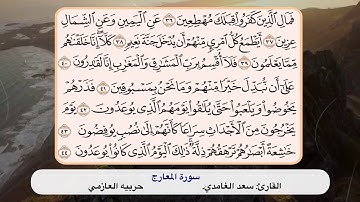 فَمَالِ ٱلَّذِينَ كَفَرُوا۟ قِبَلَكَ مُهْطِعِينَ ٣٦ عَنِ ٱلْيَمِينِ وَعَنِ ٱلشِّمَالِ
عِزِينَ ٣٧ أَيَطْمَعُ كُلُّ ٱمْرِئٍ مِّنْهُمْ أَن يُدْخَلَ جَنَّةَ نَعِيمٍ ٣٨ كَلَّآ إِنَّا خَلَقْنَٰهُم
مِّمَّا يَعْلَمُونَ ٣٩ فَلَآ أُقْسِمُ بِرَبِّ ٱلْمَشَٰرِقِ وَٱلْمَغَٰرِبِ إِنَّا لَقَٰدِرُونَ ٤٠
عَلَىٰٓ أَن نُّبَدِّلَ خَيْرًا مِّنْهُمْ وَمَا نَحْنُ بِمَسْبُوقِينَ ٤١ فَذَرْهُمْ
يَخُوضُوا۟ وَيَلْعَبُوا۟ حَتَّىٰ يُلَٰقُوا۟ يَوْمَهُمُ ٱلَّذِى يُوعَدُونَ ٤٢ يَوْمَ
يَخْرُجُونَ مِنَ ٱلْأَجْدَاثِ سِرَاعًا كَأَنَّهُمْ إِلَىٰ نُصُبٍ يُوفِضُونَ ٤٣
خَٰشِعَةً أَبْصَٰرُهُمْ تَرْهَقُهُمْ ذِلَّةٌ ذَٰلِكَ ٱلْيَوْمُ ٱلَّذِى كَانُوا۟ يُوعَدُونَ ٤٤
سورة المعارج
القارئ: سعد الغامدي. حربيه العازمي